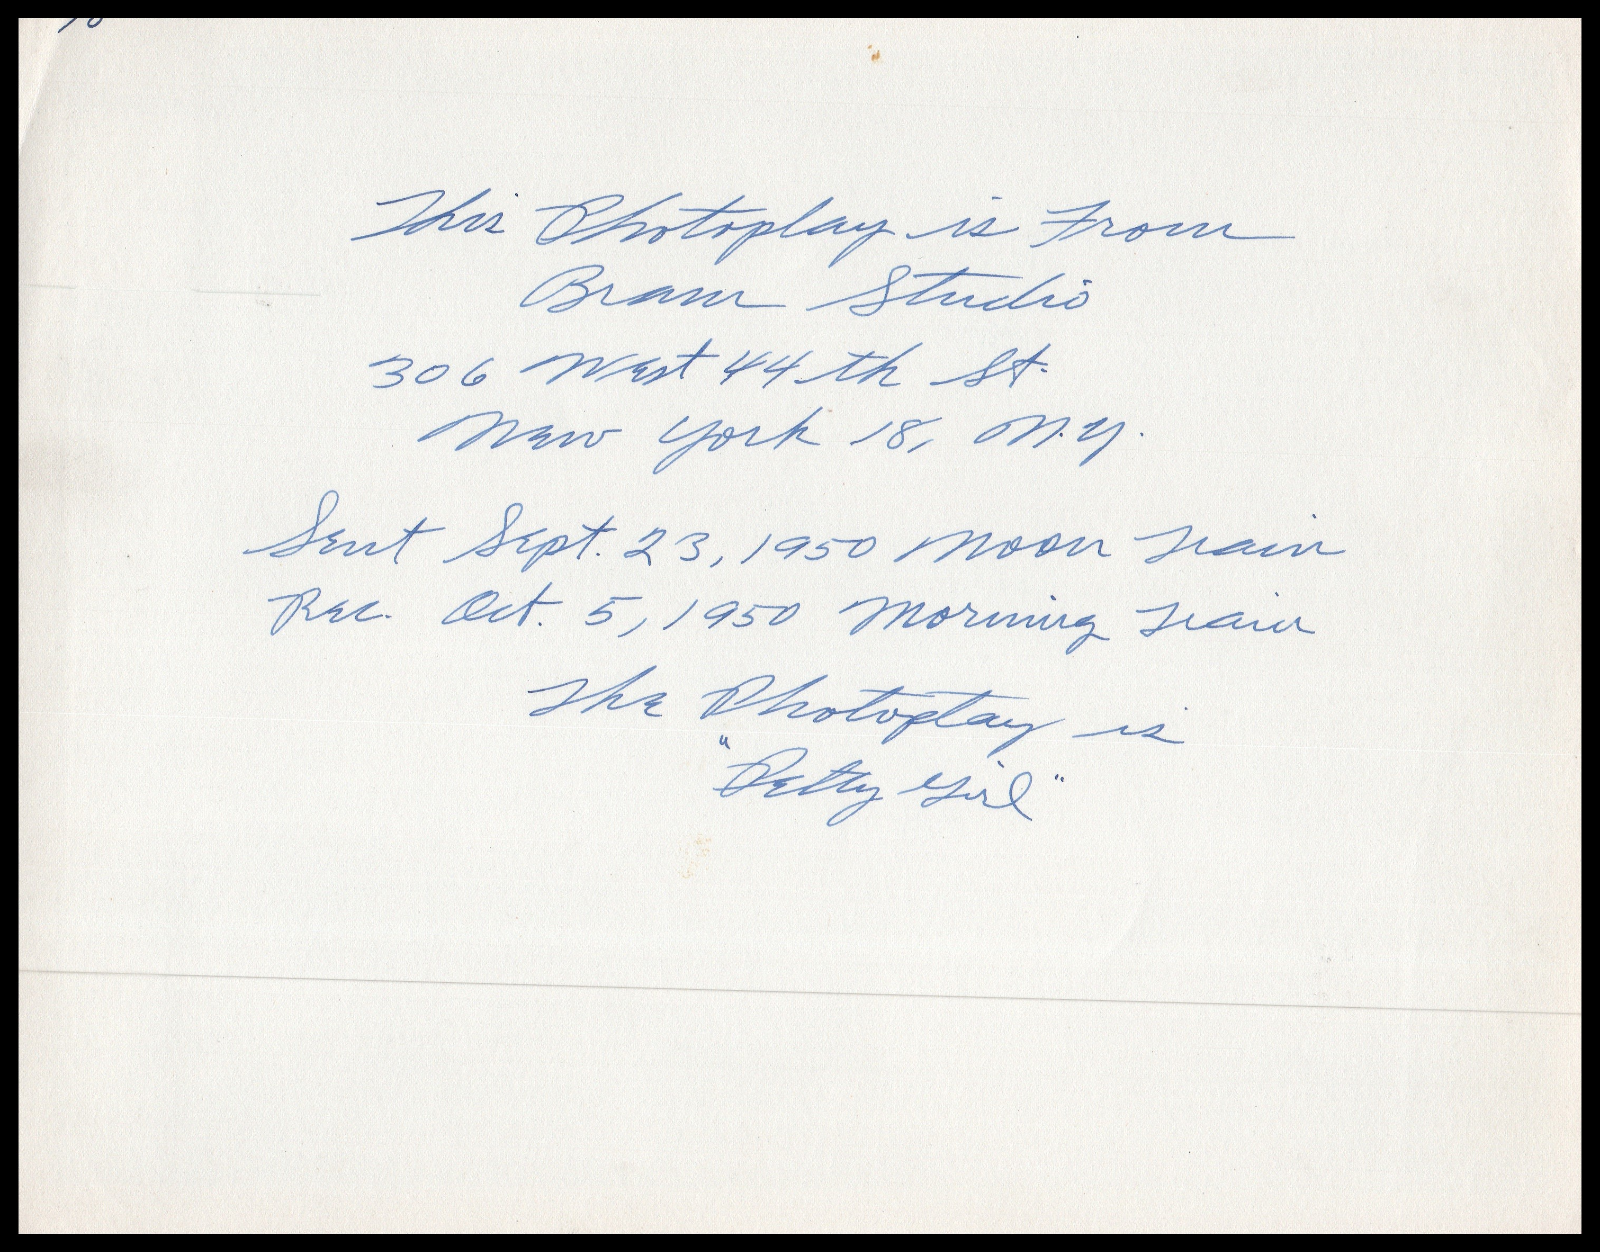 This Photoplay is From
Bram Studio
306 West 44th St.
New York 18, N.Y.
Sent Sept. 23, 1950 Noon Train
Rec. Oct. 5, 1950 Morning Train
The Photoplay is
"Petty Girl"